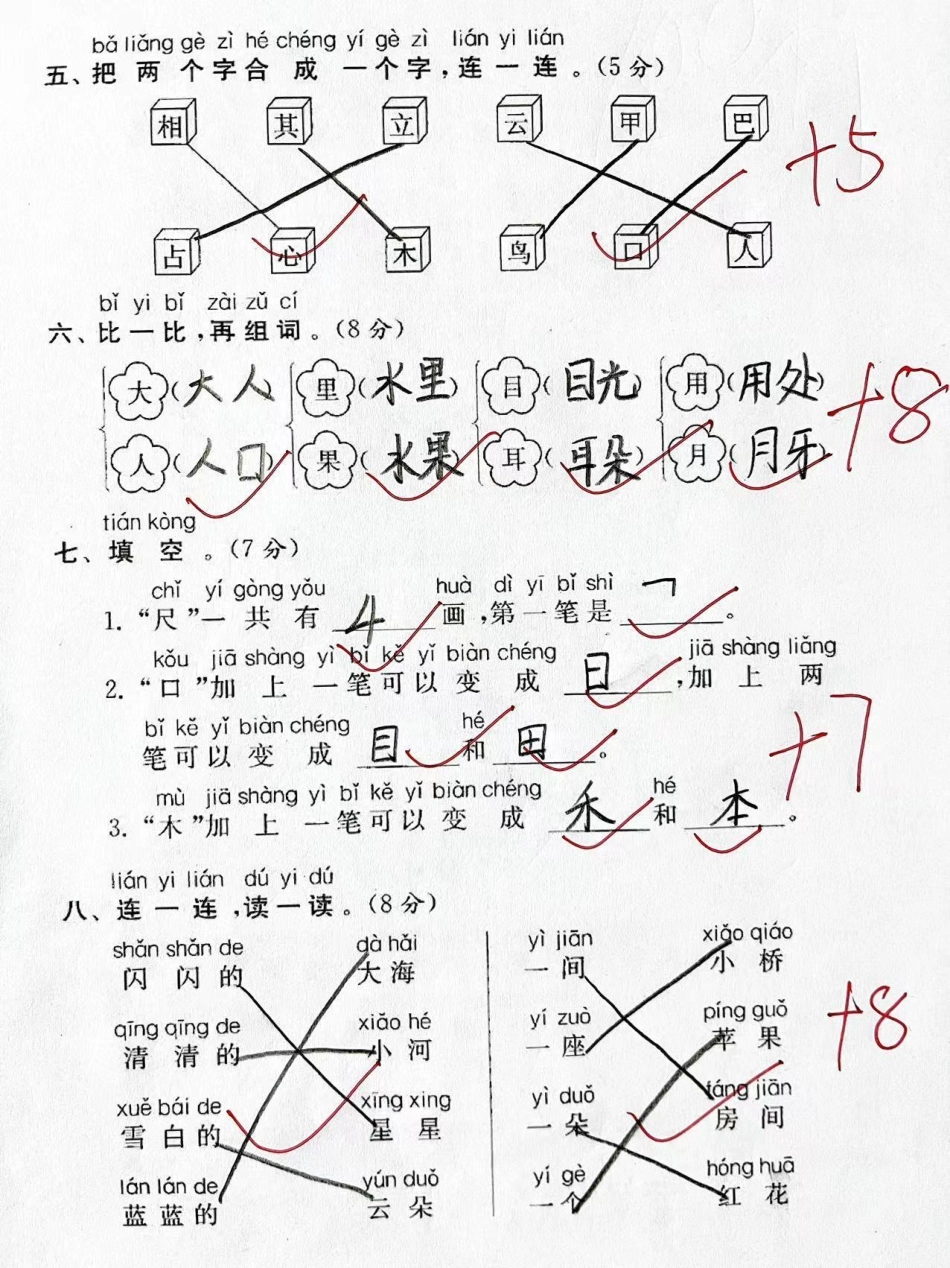 bǎ liǎng gè zì hé chéng yí gè zì lián yi lián
五、把两个字合成一个字,连一连。(5分)
相 其 立 云 甲 巴
+5
占 心 木 鸟 口 人
bǐ yi bǐ zài zǔ cí
六、比一比,再组词。(8分)
大(大人) 里(水里) 目(目光) 用(用处)
+8
人(人口) 果(水果) 耳(耳朵) 月(月牙)
tián kòng
七、填空。(7分)
chǐ yí gòng yǒu huà dì yī bǐ shì
1. “尺”一共有 4 画,第一笔是 ㇕ 。
kǒu jiā shàng yì bǐ kě yǐ biàn chéng jiā shàng liǎng
2. “口”加上一笔可以变成 日 ,加上两
bǐ kě yǐ biàn chéng hé
笔可以变成 目 和 田 。
+7
mù jiā shàng yì bǐ kě yǐ biàn chéng hé
3. “木”加上一笔可以变成 禾 和 本 。
lián yi lián dú yi dú
八、连一连,读一读。(8分)
shǎn shǎn de dà hǎi yì jiān xiǎo qiáo
闪闪的 大海 一间 小桥
qīng qīng de xiǎo hé yí zuò píng guǒ
清清的 小河 一座 苹果
+8
xuě bái de xīng xing yì duǒ fáng jiān
雪白的 星星 一朵 房间
lán lán de yún duǒ yí gè hóng huā
蓝蓝的 云朵 一个 红花